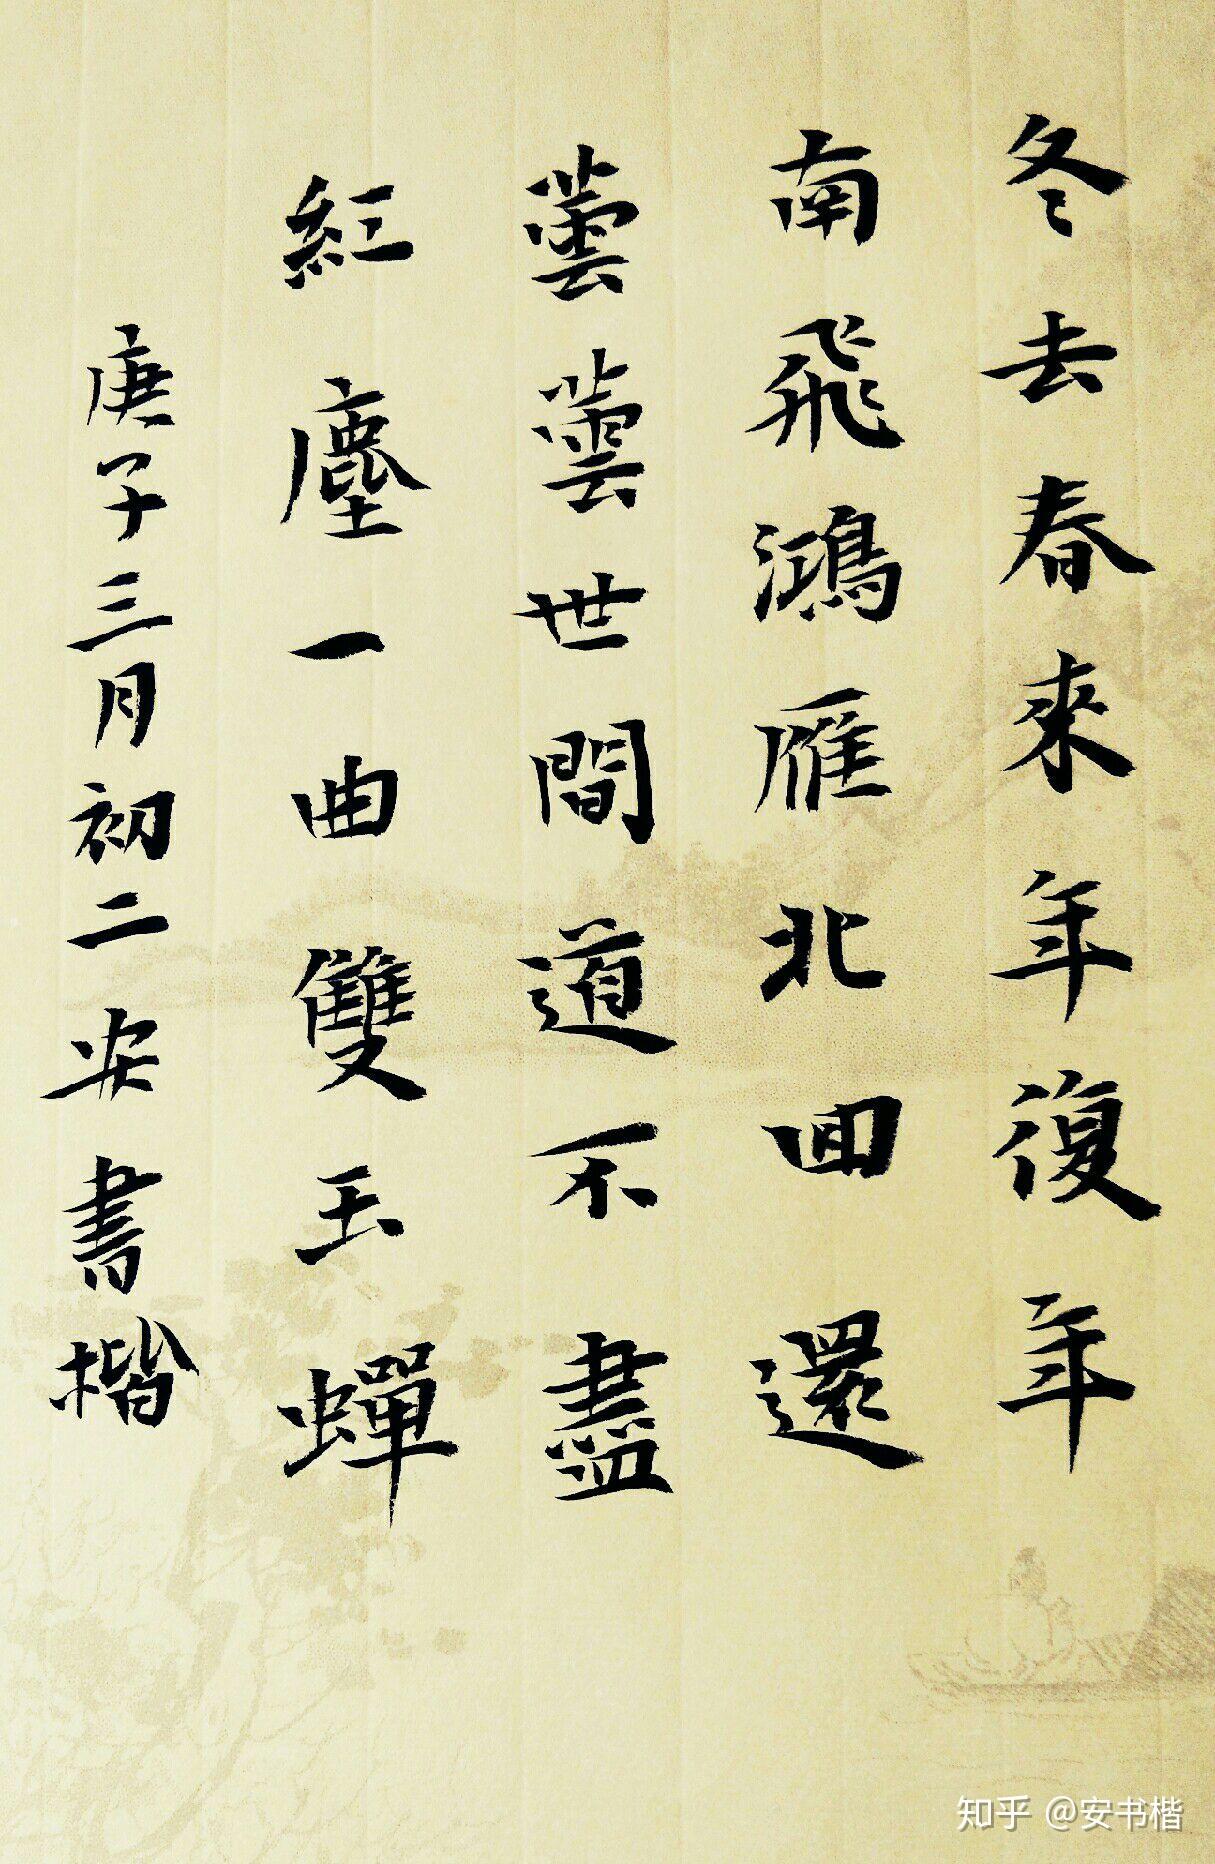 冬去春來年復年
南飛鴻雁北回還
蕓蕓世間道不盡
紅塵一曲雙玉蟬
庚子三月初二安書楷
知乎 @安书楷